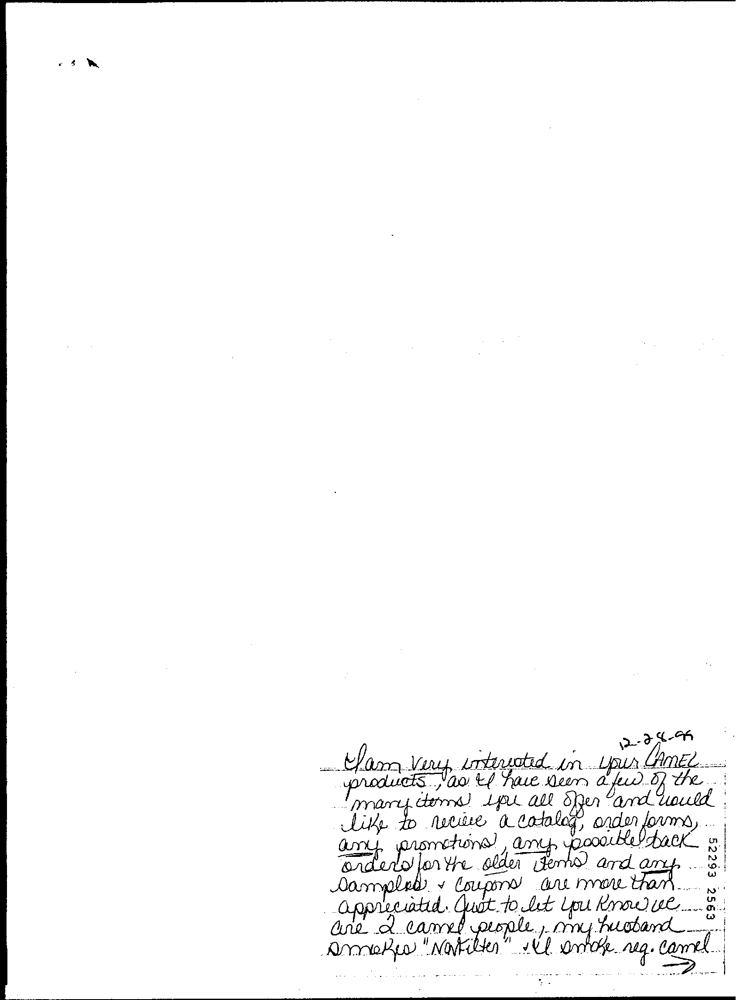 12-28-99
I am very interested in your CAMEL
products, as I have seen a few of the
many items you all offer and would
like to recieve a catalog, order forms,
any promotions, any possible back
orders for the older items and any
samples & coupons are more than
appreciated. Just to let you know we
are 2 camel people, my husband
smokes "Nonfilter" & I smoke reg. camel
→
52293 2563